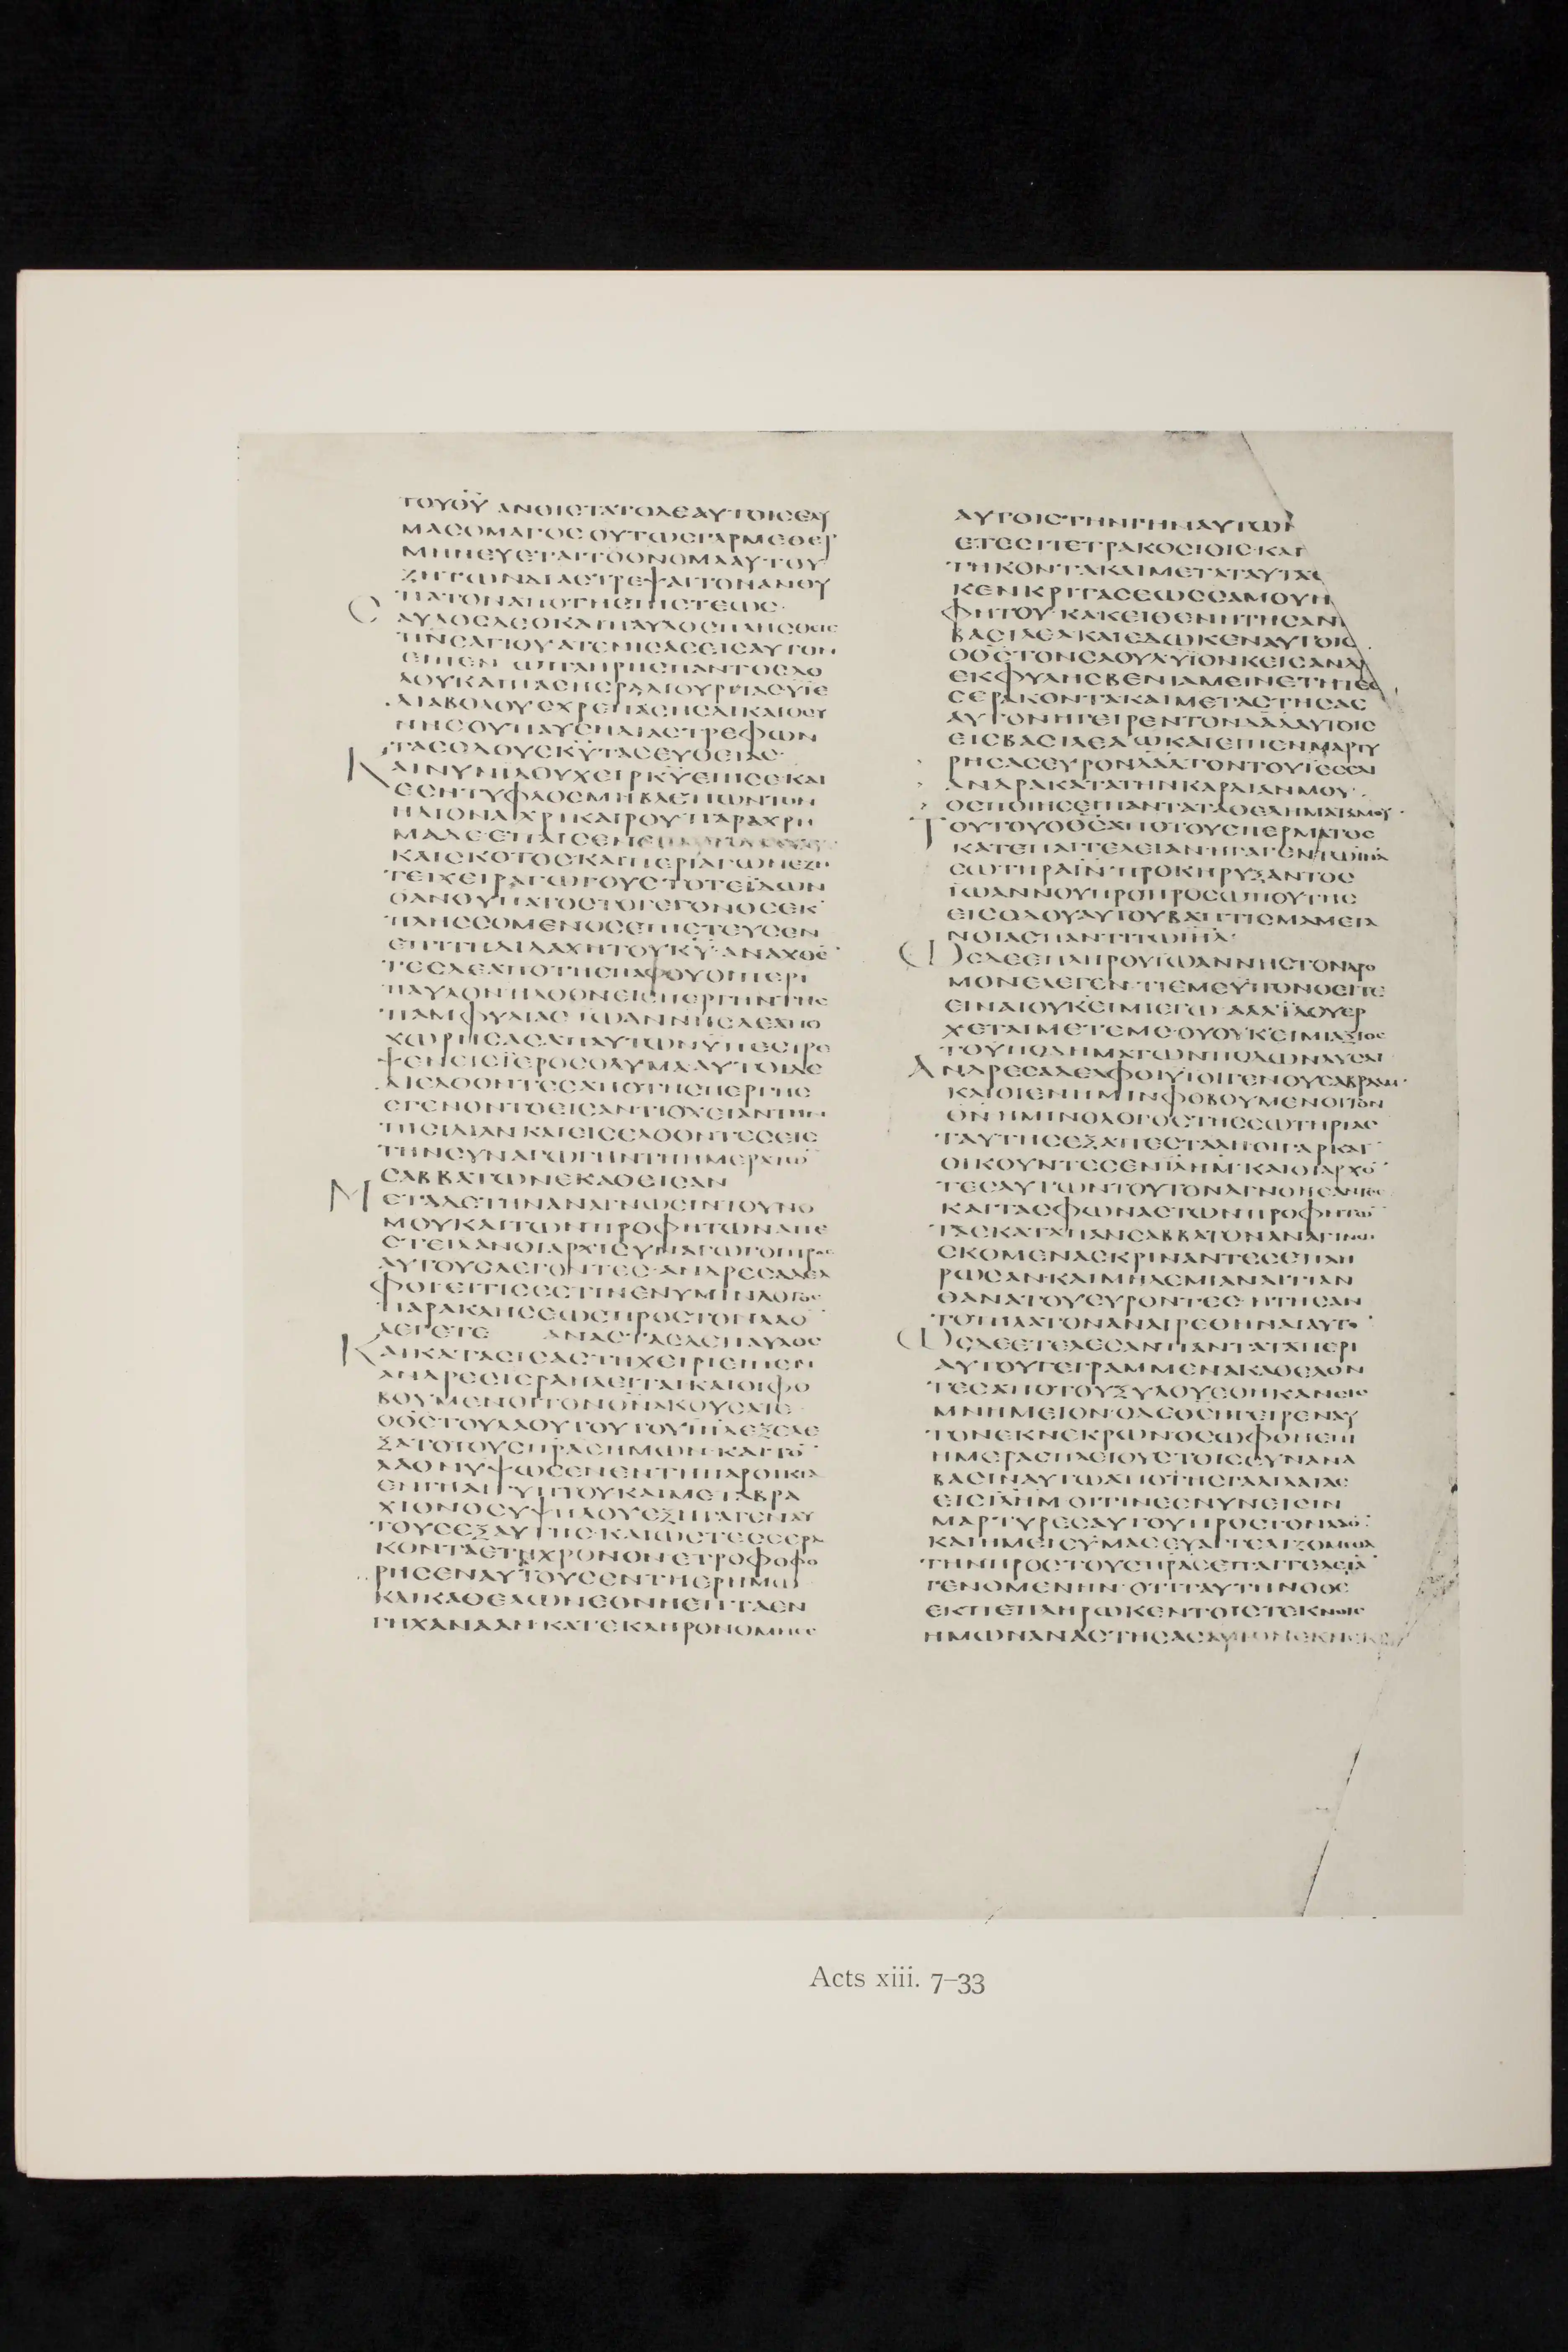 ΤΟΥΘΥ ΑΝΘΙϹΤΑΤΟΔΕΑΥΤΟΙϹΕΛΥ
ΜΑϹΟΜΑΓΟϹΟΥΤΩϹΓΑΡΜΕΘΕΡ
ΜΗΝΕΥΕΤΑΙΤΟΟΝΟΜΑΑΥΤΟΥ
ΖΗΤΩΝΔΙΑϹΤΡΕΨΑΙΤΟΝΑΝΘΥ
ΠΑΤΟΝΑΠΟΤΗϹΠΙϹΤΕΩϹ·
ϹΑΥΛΟϹΔΕΟΚΑΙΠΑΥΛΟϹΠΛΗϹΘΕΙϹ
ΠΝ̅ϹΑΓΙΟΥΑΤΕΝΙϹΑϹΕΙϹΑΥΤΟΝ
ΕΙΠΕΝ ΩΠΛΗΡΗϹΠΑΝΤΟϹΔΟ
ΛΟΥΚΑΙΠΑϹΗϹΡΑΔΙΟΥΡΓΙΑϹΥΪΕ
ΔΙΑΒΟΛΟΥΕΧΡΕΠΑϹΗϹΔΙΚΑΙΟϹΥ
ΝΗϹΟΥΠΑΥϹΗΔΙΑϹΤΡΕΦΩΝ
ΤΑϹΟΔΟΥϹΚ̅Υ̅ΤΑϹΕΥΘΕΙΑϹ·
ΚΑΙΝΥΝΙΔΟΥΧΕΙΡΚ̅Υ̅ΕΠΙϹΕΚΑΙ
ΕϹΗΤΥΦΛΟϹΜΗΒΛΕΠΩΝΤΟΝ
ΗΛΙΟΝΑΧΡΙΚΑΙΡΟΥΠΑΡΑΧΡΗ
ΜΑΔΕΕΠΑΙϹΕΝ
ΚΑΙϹΚΟΤΟϹΚΑΙΠΕΡΙΑΓΩΝΕΖΗ
ΤΕΙΧΕΙΡΑΓΩΓΟΥϹΤΟΤΕΪΔΩΝ
ΟΑΝΘΥΠΑΤΟϹΤΟΓΕΓΟΝΟϹΕΚ
ΠΛΗϹϹΟΜΕΝΟϹΕΠΙϹΤΕΥϹΕΝ
ΕΠΙΤΗΔΙΔΑΧΗΤΟΥΚ̅Υ̅·ΑΝΑΧΘΕ̅
ΤΕϹΔΕΑΠΟΤΗϹΠΑΦΟΥΟΙΠΕΡΙ
ΠΑΥΛΟΝΗΛΘΟΝΕΙϹΠΕΡΓΗΝΤΗϹ
ΠΑΜΦΥΛΙΑϹ ΪΩΑΝΝΗϹΔΕΑΠΟ
ΧΩΡΗϹΑϹΑΠΑΥΤΩΝΫΠΕϹΤΡΕ
ΨΕΝΕΙϹΪΕΡΟϹΟΛΥΜΑ·ΑΥΤΟΙΔΕ
ΔΙΕΛΘΟΝΤΕϹΑΠΟΤΗϹΠΕΡΓΗϹ
ΕΓΕΝΟΝΤΟΕΙϹΑΝΤΙΟΧΕΙΑΝΤΗΝ
ΠΙϹΙΔΙΑΝΚΑΙΕΙϹΕΛΘΟΝΤΕϹΕΙϹ
ΤΗΝϹΥΝΑΓΩΓΗΝΤΗΗΜΕΡΑΤΩ̅
ϹΑΒΒΑΤΩΝΕΚΑΘΕΙϹΑΝ
ΜΕΤΑΔΕΤΗΝΑΝΑΓΝΩϹΙΝΤΟΥΝΟ
ΜΟΥΚΑΙΤΩΝΠΡΟΦΗΤΩΝΑΠΕ
ϹΤΕΙΛΑΝΟΙΑΡΧΙϹΥΝΑΓΩΓΟΙΠΡΟϹ
ΑΥΤΟΥϹΛΕΓΟΝΤΕϹ·ΑΝΔΡΕϹΑΔΕΛ
ΦΟΙΕΙΤΙϹΕϹΤΙΝΕΝΥΜΙΝΛΟΓΟϹ
ΠΑΡΑΚΛΗϹΕΩϹΠΡΟϹΤΟΝΛΑΟ̅
ΛΕΓΕΤΕ ΑΝΑϹΤΑϹΔΕΠΑΥΛΟϹ
ΚΑΙΚΑΤΑϹΙϹΑϹΤΗΧΕΙΡΙΕΙΠΕΝ
ΑΝΔΡΕϹΙϹΡΑΗΛΕΙΤΑΙΚΑΙΟΙΦΟ
ΒΟΥΜΕΝΟΙΤΟΝΘ̅Ν̅ΑΚΟΥϹΑΤΕ·
ΟΘ̅Ϲ̅ΤΟΥΛΑΟΥΤΟΥΤΟΥΙ̅Η̅Λ̅ΕΞΕΛΕ
ΞΑΤΟΤΟΥϹΠ̅Ρ̅Α̅Ϲ̅ΗΜΩΝ·ΚΑΙΤΟ̅
ΛΑΟΝΥΨΩϹΕΝΕΝΤΗΠΑΡΟΙΚΙΑ
ΕΝΓΗΑΙΓΥΠΤΟΥΚΑΙΜΕΤΑΒΡΑ
ΧΙΟΝΟϹΥΨΗΛΟΥΕΞΗΓΑΓΕΝΑΥ
ΤΟΥϹΕΞΑΥΤΗϹ·ΚΑΙΩϹΤΕϹϹΕΡΑ
ΚΟΝΤΑΕΤΗΧΡΟΝΟΝΕΤΡΟΦΟΦΟ
ΡΗϹΕΝΑΥΤΟΥϹΕΝΤΗΕΡΗΜΩ
ΚΑΙΚΑΘΕΛΩΝΕΘΝΗΕΠΤΑΕΝ
ΓΗΧΑΝΑΑΝ·ΚΑΤΕΚΛΗΡΟΝΟΜΗϹΕ
ΑΥΤΟΙϹΤΗΝΓΗΝΑΥΤΩΝ
ΕΤΕϹΙΤΕΤΡΑΚΟϹΙΟΙϹ·ΚΑΙ
ΤΗΚΟΝΤΑΚΑΙΜΕΤΑΤΑΥΤΑ
ΚΕΝΚΡΙΤΑϹΕΩϹϹΑΜΟΥΗ
ΦΗΤΟΥ·ΚΑΚΕΙΘΕΝΗΤΗϹΑΝ
ΒΑϹΙΛΕΑΚΑΙΕΔΩΚΕΝΑΥΤΟΙϹ
ΟΘ̅Ϲ̅ΤΟΝϹΑΟΥΛΥΪΟΝΚΕΙϹΑΝΔ
ΕΚΦΥΛΗϹΒΕΝΙΑΜΕΙΝΕΤΗΤΕϹ
ϹΕΡΑΚΟΝΤΑΚΑΙΜΕΤΑϹΤΗϹΑϹ
ΑΥΤΟΝΗΓΕΙΡΕΝΤΟΝΔΑ̅Δ̅ΑΥΤΟΙϹ
ΕΙϹΒΑϹΙΛΕΑΩΚΑΙΕΙΠΕΝΜΑΡΤΥ
ΡΗϹΑϹΕΥΡΟΝΔΑ̅Δ̅ΤΟΝΤΟΥΙΕϹϹΑΙ
ΑΝΔΡΑΚΑΤΑΤΗΝΚΑΡΔΙΑΝΜΟΥ·
ΟϹΠΟΙΗϹΕΙΠΑΝΤΑΤΑΘΕΛΗΜΑΤΑΜΟΥ·
ΤΟΥΤΟΥΟΘ̅Ϲ̅ΑΠΟΤΟΥϹΠΕΡΜΑΤΟϹ
ΚΑΤΕΠΑΓΓΕΛΕΙΑΝΗΓΑΓΕΝΤΩΙ̅Η̅Λ̅
ϹΩΤΗΡΑΙ̅Ν̅·ΠΡΟΚΗΡΥΞΑΝΤΟϹ
ΪΩΑΝΝΟΥΠΡΟΠΡΟϹΩΠΟΥΤΗϹ
ΕΙϹΟΔΟΥΑΥΤΟΥΒΑΠΤΙϹΜΑΜΕΤΑ
ΝΟΙΑϹΠΑΝΤΙΤΩΙ̅Η̅Λ̅·
ΩϹΔΕΕΠΛΗΡΟΥΪΩΑΝΝΗϹΤΟΝΔΡΟ
ΜΟΝΕΛΕΓΕΝ·ΤΙΕΜΕΫΠΟΝΟΕΙΤΕ
ΕΙΝΑΙΟΥΚΕΙΜΙΕΓΩ·ΑΛΛΪΔΟΥΕΡ
ΧΕΤΑΙΜΕΤΕΜΕ·ΟΥΟΥΚΕΙΜΙΑΞΙΟϹ
ΤΟΥΠΟΔΗΜΑΤΩΝΠΟΔΩΝΛΥϹΑΙ
ΑΝΔΡΕϹΑΔΕΛΦΟΙΥΪΟΙΓΕΝΟΥϹΑΒΡΑΑΜ·
ΚΑΙΟΙΕΝΗΜΙΝΦΟΒΟΥΜΕΝΟΙΤΟΝ
Θ̅Ν̅ ΗΜΙΝΟΛΟΓΟϹΤΗϹϹΩΤΗΡΙΑϹ
ΤΑΥΤΗϹΕΞΑΠΕϹΤΑΛΗΟΙΓΑΡΚΑΤ
ΟΙΚΟΥΝΤΕϹΕΝΙ̅Λ̅Η̅Μ̅·ΚΑΙΟΙΑΡΧΟ̅
ΤΕϹΑΥΤΩΝΤΟΥΤΟΝΑΓΝΟΗϹΑΝΤΕϹ
ΚΑΙΤΑϹΦΩΝΑϹΤΩΝΠΡΟΦΗΤΩ̅
ΤΑϹΚΑΤΑΠΑΝϹΑΒΒΑΤΟΝΑΝΑΓΙΝΩ
ϹΚΟΜΕΝΑϹΚΡΙΝΑΝΤΕϹΕΠΛΗ
ΡΩϹΑΝ·ΚΑΙΜΗΔΕΜΙΑΝΑΙΤΙΑΝ
ΘΑΝΑΤΟΥΕΥΡΟΝΤΕϹ·ΗΤΗϹΑΝ
ΤΟΠΙΛΑΤΟΝΑΝΑΙΡΕΘΗΝΑΙΑΥΤΟ̅
ΩϹΔΕΕΤΕΛΕϹΑΝΠΑΝΤΑΤΑΠΕΡΙ
ΑΥΤΟΥΓΕΓΡΑΜΜΕΝΑΚΑΘΕΛΟΝ
ΤΕϹΑΠΟΤΟΥΞΥΛΟΥΕΘΗΚΑΝΕΙϹ
ΜΝΗΜΕΙΟΝ·ΟΔΕΘ̅Ϲ̅ΗΓΕΙΡΕΝΑΥ
ΤΟΝΕΚΝΕΚΡΩΝΟϹΩΦΘΗΕΠΙ
ΗΜΕΡΑϹΠΛΕΙΟΥϹΤΟΙϹϹΥΝΑΝΑ
ΒΑϹΙΝΑΥΤΩΑΠΟΤΗϹΓΑΛΙΛΑΙΑϹ
ΕΙϹΙ̅Λ̅Η̅Μ̅ ΟΙΤΙΝΕϹΝΥΝΕΙϹΙΝ
ΜΑΡΤΥΡΕϹΑΥΤΟΥΠΡΟϹΤΟΝΛΑΟ̅·
ΚΑΙΗΜΕΙϹΥΜΑϹΕΥΑΓΓΕΛΙΖΟΜΕΘΑ
ΤΗΝΠΡΟϹΤΟΥϹΠ̅Ρ̅Α̅Ϲ̅ΕΠΑΓΓΕΛΕΙΑ̅
ΓΕΝΟΜΕΝΗΝ·ΟΤΙΤΑΥΤΗΝΟΘ̅Ϲ̅
ΕΚΠΕΠΛΗΡΩΚΕΝΤΟΙϹΤΕΚΝΟΙϹ
ΗΜΩΝΑΝΑϹΤΗϹΑϹ
Acts xiii. 7–33